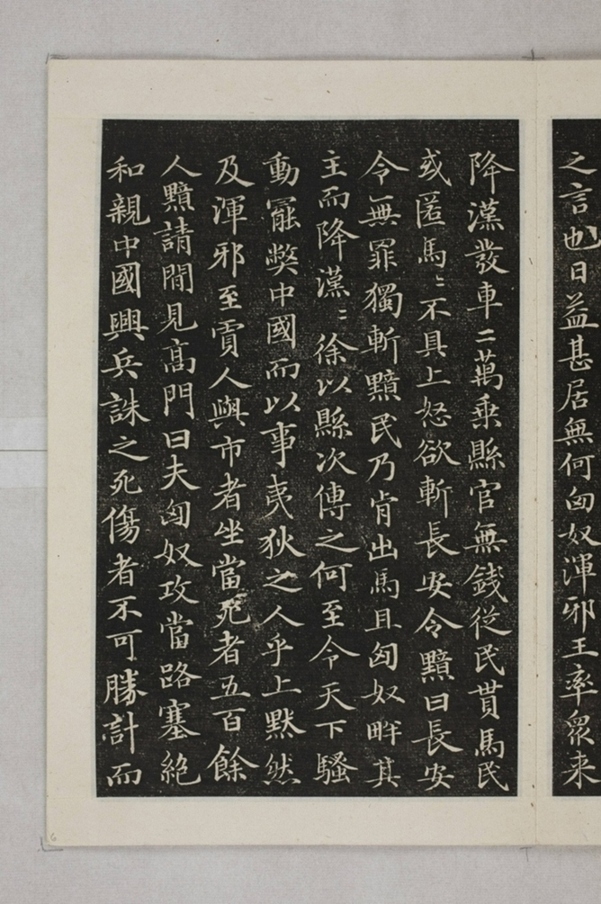 之言也日益甚居無何匈奴渾邪王率眾来
降漢發車二萬乗縣官無錢従民貰馬民
或匿馬〻不具上怒欲斬長安令黯曰長安
令無罪獨斬黯民乃肯出馬且匈奴畔其
主而降漢〻徐以縣次傳之何至令天下騷
動罷獘中國而以事夷狄之人乎上默然
及渾邪至賈人與市者坐當死者五百餘
人黯請間見髙門曰夫匈奴攻當路塞絶
和親中國興兵誅之死傷者不可勝計而